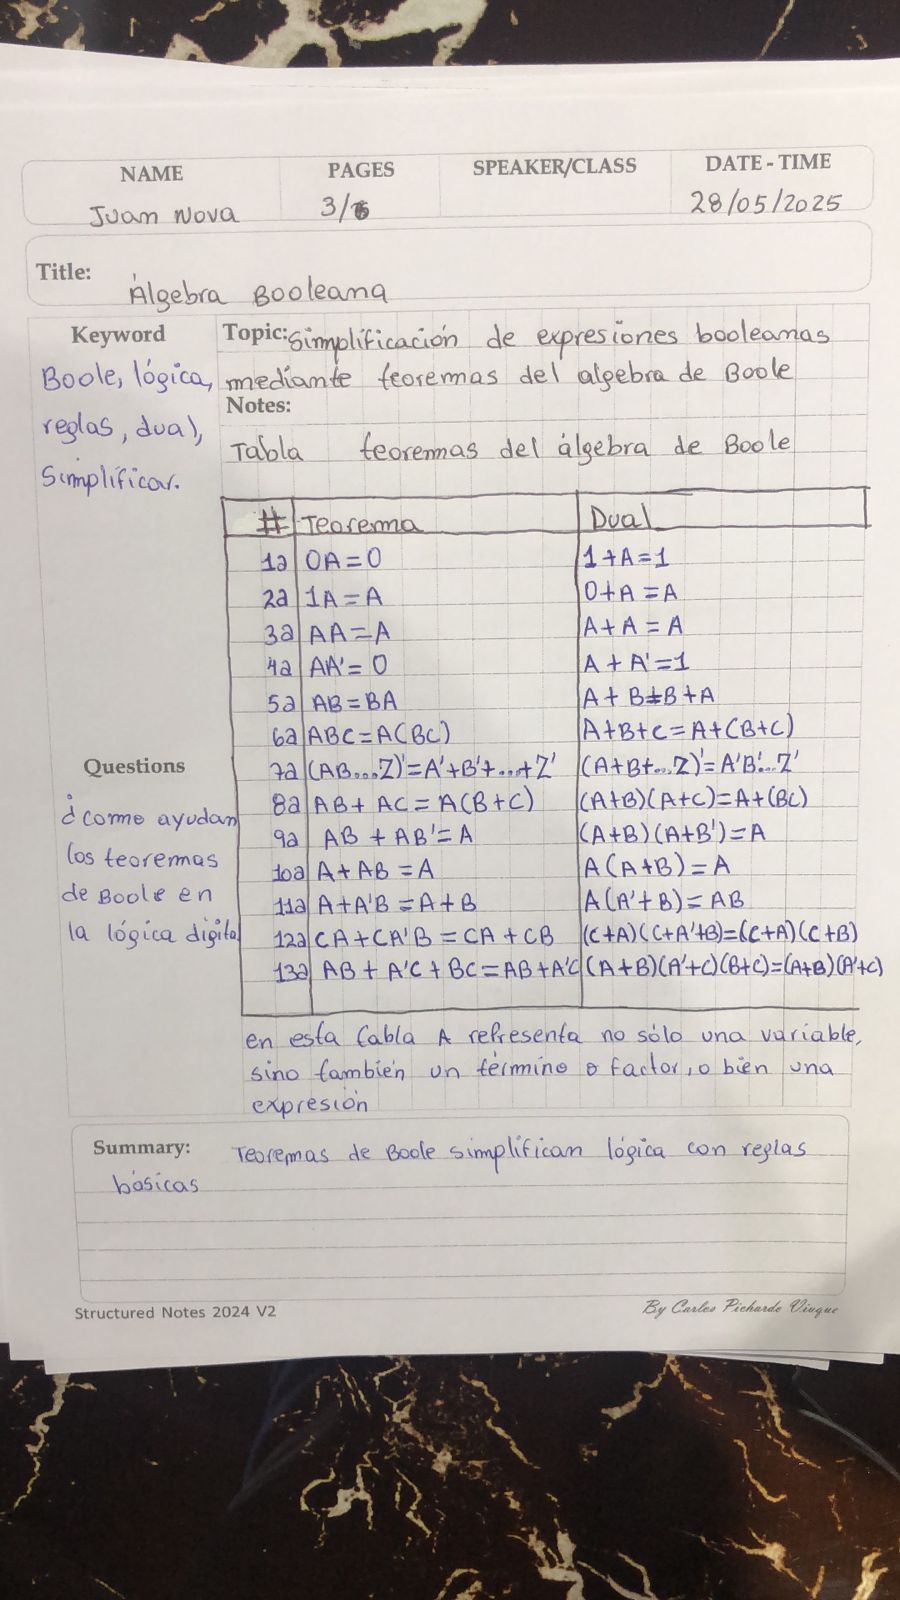 NAME PAGES SPEAKER/CLASS DATE - TIME
Juan Nova 3/6 28/05/2025
Title: Álgebra Booleana
Keyword
Boole, lógica,
reglas, dual,
Simplificar.
Topic: Simplificación de expresiones booleanas
mediante teoremas del algebra de Boole
Notes:
Tabla teoremas del álgebra de Boole
# Teorema Dual
1a 0A = 0 1 + A = 1
2a 1A = A 0 + A = A
3a AA = A A + A = A
4a AA' = 0 A + A' = 1
5a AB = BA A + B = B + A
6a ABC = A(BC) A+B+C = A+(B+C)
7a (AB...Z)' = A'+B'+...+Z' (A+B+...Z)' = A'B'...Z'
8a AB + AC = A(B+C) (A+B)(A+C) = A+(BC)
9a AB + AB' = A (A+B)(A+B') = A
10a A + AB = A A(A+B) = A
11a A + A'B = A + B A(A'+B) = AB
12a CA + CA'B = CA + CB (C+A)(C+A'+B)=(C+A)(C+B)
13a AB + A'C + BC = AB + A'C (A+B)(A'+C)(B+C)=(A+B)(A'+C)
en esta tabla A representa no sólo una variable,
sino también un término o factor, o bien una
expresión
Questions
¿como ayudan
los teoremas
de Boole en
la lógica digital
Summary: Teoremas de Boole simplifican lógica con reglas
básicas
Structured Notes 2024 V2 By Carlos Pichardo Viuque